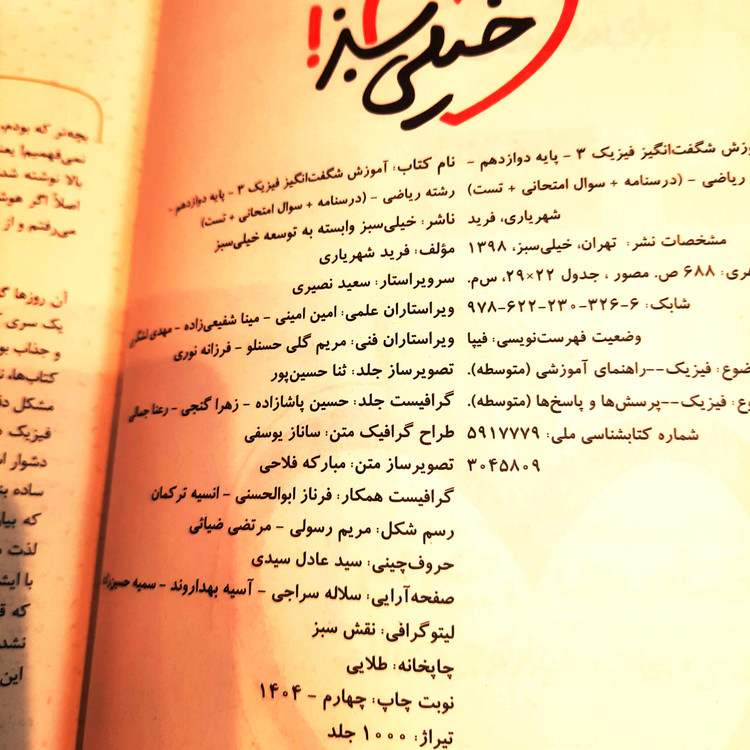 خیلی سبز!
ـوزش شگفت‌انگیز فیزیک ۳ - پایه دوازدهم -
ریاضی - (درسنامه + سوال امتحانی + تست)
شهریاری، فرید
مشخصات نشر: تهران، خیلی‌سبز، ۱۳۹۸
ـهری: ۶۸۸ ص. مصور، جدول ۲۲×۲۹، س‌م.
شابک: ۶-۳۲۶-۲۳۰-۶۲۲-۹۷۸
وضعیت فهرست‌نویسی: فیپا
ـضوع: فیزیک--راهنمای آموزشی (متوسطه).
ـوع: فیزیک--پرسش‌ها و پاسخ‌ها (متوسطه).
شماره کتابشناسی ملی: ۵۹۱۷۷۷۹
۳۰۴۵۸۰۹
نام کتاب: آموزش شگفت‌انگیز فیزیک ۳ - پایه دوازدهم -
رشته ریاضی - (درسنامه + سوال امتحانی + تست)
ناشر: خیلی‌سبز وابسته به توسعه خیلی‌سبز
مؤلف: فرید شهریاری
سرویراستار: سعید نصیری
ویراستاران علمی: امین امینی - مینا شفیعی‌زاده - مهدی
ویراستاران فنی: مریم گلی حسنلو - فرزانه نوری
تصویرساز جلد: ثنا حسین‌پور
گرافیست جلد: حسین پاشازاده - زهرا گنجی - رعنا جمالی
طراح گرافیک متن: ساناز یوسفی
تصویرساز متن: مبارکه فلاحی
گرافیست همکار: فرناز ابوالحسنی - انسیه ترکمان
رسم شکل: مریم رسولی - مرتضی ضیائی
حروف‌چینی: سید عادل سیدی
صفحه‌آرایی: سلاله سراجی - آسیه بهداروند - سمیه
لیتوگرافی: نقش سبز
چاپخانه: طلایی
نوبت چاپ: چهارم - ۱۴۰۴
تیراژ: ۱۰۰۰ جلد
بچه‌تر که بودم،
نمی‌فهمیم! یعنـ
بالا نوشته شد
اصلاً اگر هوشـ
می‌رفتم و از
آن روزها گـ
یک سری
و جذاب بو
کتاب‌ها، نـ
مشکل دا
فیزیک
دشوار
ساده بنـ
که بیا
لذت
با ایشـ
که
نشد
این